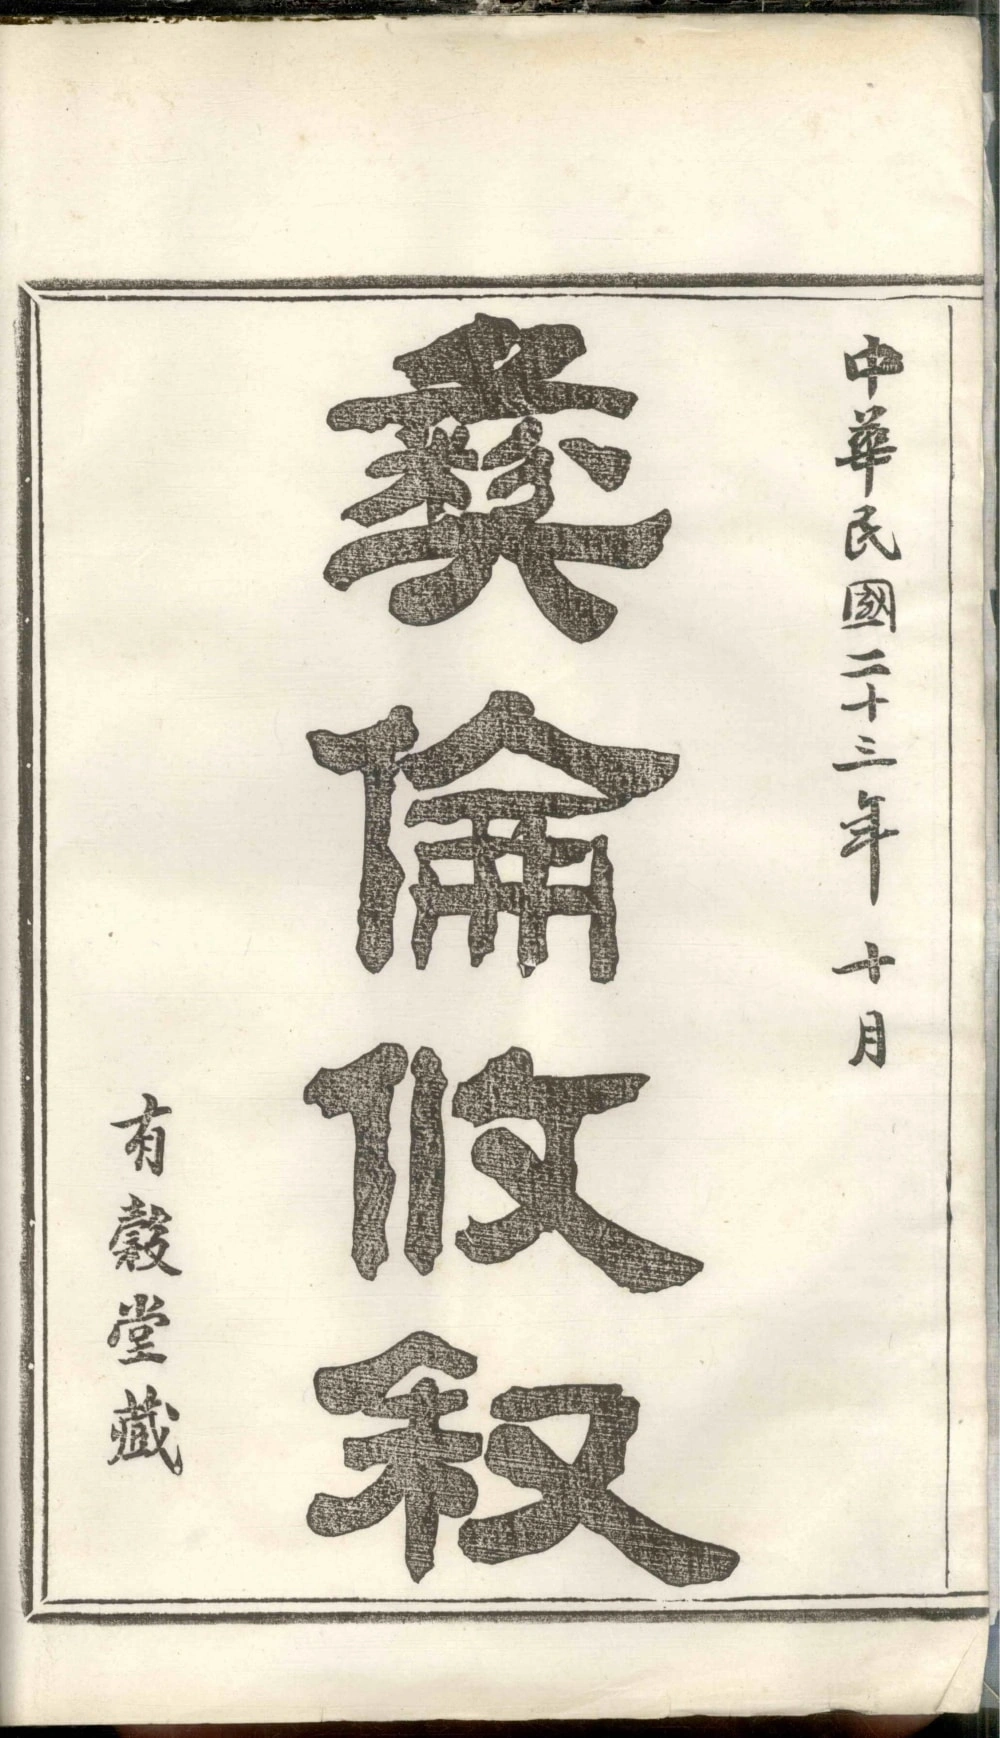 中華民國二十三年 十月
彝倫攸叙
有穀堂藏